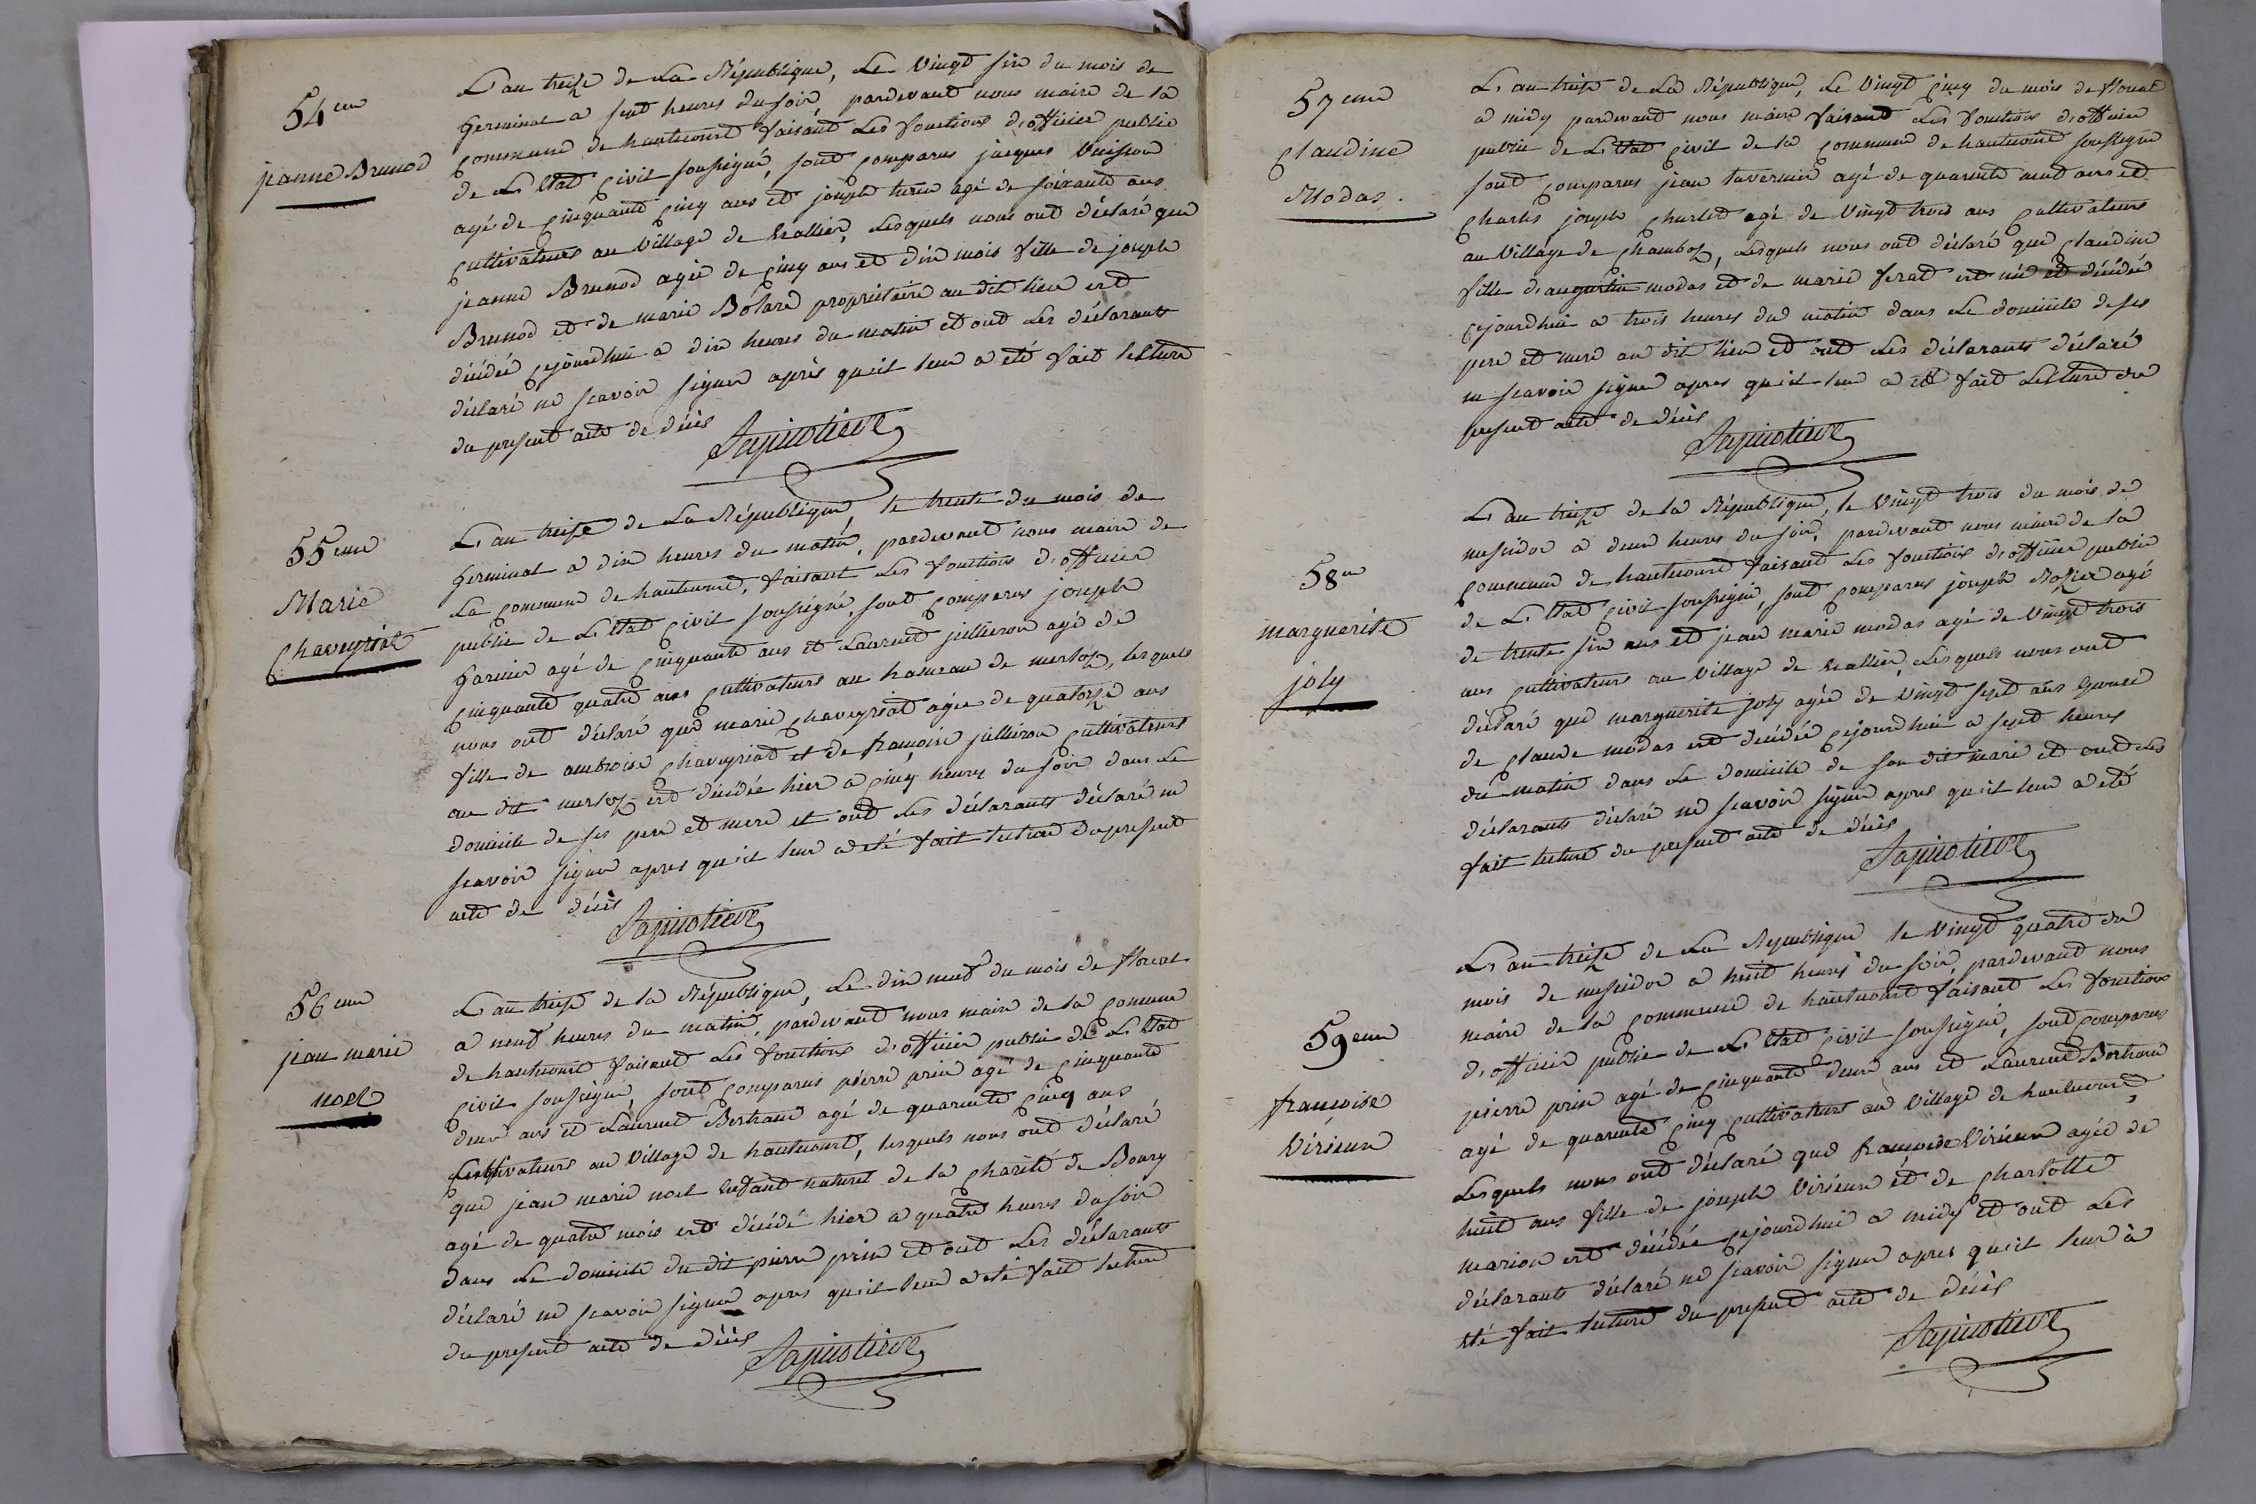 54eme
jeanne Brunod
L'an treize de La République, Le Vingt six du mois de
Germinal a sept heures du soir, pardevant nous maire de la
commune de hautecourt faisant Les fonctions d'officier public
de L'Etat Civil soussigné, sont comparus jacques Buisson
agé de cinquante cinq ans et joseph turin agé de soixante ans
cultivateurs au Village de Uallier, Lesquels nous ont déclaré que
jeanne Brunod agée de cinq ans et dix mois fille de joseph
Brunod et de marie Bolard propriétaire au dit lieu est
décédée cejourdhui a dix heures du matin et ont Les déclarants
déclaré ne scavoir signer après qu'il leur a été fait lecture
du present acte de décès
55eme
Marie
Chaveyriat
L'an treize de La République le trente du mois de
Germinal a dix heures du matin, pardevant nous maire de
La commune de hautecourt, faisant Les fonctions d'officier
public de L'Etat Civil soussigné, sont comparus joseph
Garnier agé de cinquante ans et Laurent jullieron agé de
cinquante quatre ans cultivateurs au hameau de merloz, lesquels
nous ont déclaré que marie Chaveyriat agée de quatorze ans
fille de ambroise Chaveyriat et de françoise jullieron cultivateurs
au dit merloz est décédée hier a cinq heures du soir dans Le
domicile de ses pere et mere et ont Les déclarants déclaré ne
scavoir signer apres qu'il leur a été fait lecture du present
acte de décès
56eme
jean marie
noel
L'an treize de la République, Le dix neuf du mois de floreal
a neuf heures du matin, pardevant nous maire de la comune
de hautecourt faisant Les fonctions d'officier public de L'Etat
Civil soussigné, sont comparus pierre prin agé de cinquante
deux ans et Laurent Bertrand agé de quarente cinq ans
cultivateurs au Village de hautecourt, lesquels nous ont déclaré
que jean marie noel enfant naturel de la charité de Bourg
agé de quatre mois est décédé hier a quatre heures du soir
dans Le domicile du dit pierre prin et ont Les déclarants
déclaré ne scavoir signer apres qu'il leur a été fait lecture
du present acte de décès
57eme
Claudine
Modas.
L'an treize de La République, Le Vingt cinq du mois de floreal
a midy pardevant nous maire faisant Les fonctions d'officier
public de L'Etat Civil de la commune de hautecourt soussigné
sont comparus jean tavernier agé de quarente neuf ans et
Charles joseph Charlet agé de Vingt trois ans cultivateurs
au Village de Chamboz, Lesquels nous ont déclaré que Claudine
fille d'augustin modas et de marie ferat est née et décédée
cejourdhui a trois heures du matin dans Le domicile de ses
pere et mere au dit lieu et ont Les déclarants déclaré
ne scavoir signer apres qu'il leur a été fait Lecture du
present acte de décès
58me
marguerite
joly
L'an treize de la République, le Vingt trois du mois de
messidor a deux heures du soir, pardevant nous maire de la
commune de hautecourt faisant Les fonctions d'officier public
de L'Etat Civil soussigné, sont comparus joseph Rozier agé
de trente six ans et jean marie modas agé de Vingt trois
ans cultivateurs au Village de Uallier, Lesquels nous ont
déclaré que marguerite joly agée de Vingt sept ans epouse
de Claude modas est décédée cejourdhui a sept heures
du matin dans Le domicile de son dit mari et ont Les
déclarants déclaré ne scavoir signer apres qu'il leur a été
fait lecture du present acte de décès
59eme
françoise
Virieux
L'an treize de La Republique le Vingt quatre du
mois de messidor a huit heures du soir, pardevant nous
maire de la commune de hautecourt faisant Les fonctions
d'officier public de L'Etat Civil soussigné, sont comparus
pierre prin agé de cinquante deux ans et Laurent Bertrand
agé de quarente cinq cultivateurs au Village de hautecourt,
Lesquels nous ont déclaré que françoise Virieux agée de
huit ans fille de joseph Virieux et de Charlotte
marion est décédée cejourdhui a midy et ont Les
déclarants déclaré ne scavoir signer apres qu'il leur a
été fait lecture du present acte de décès